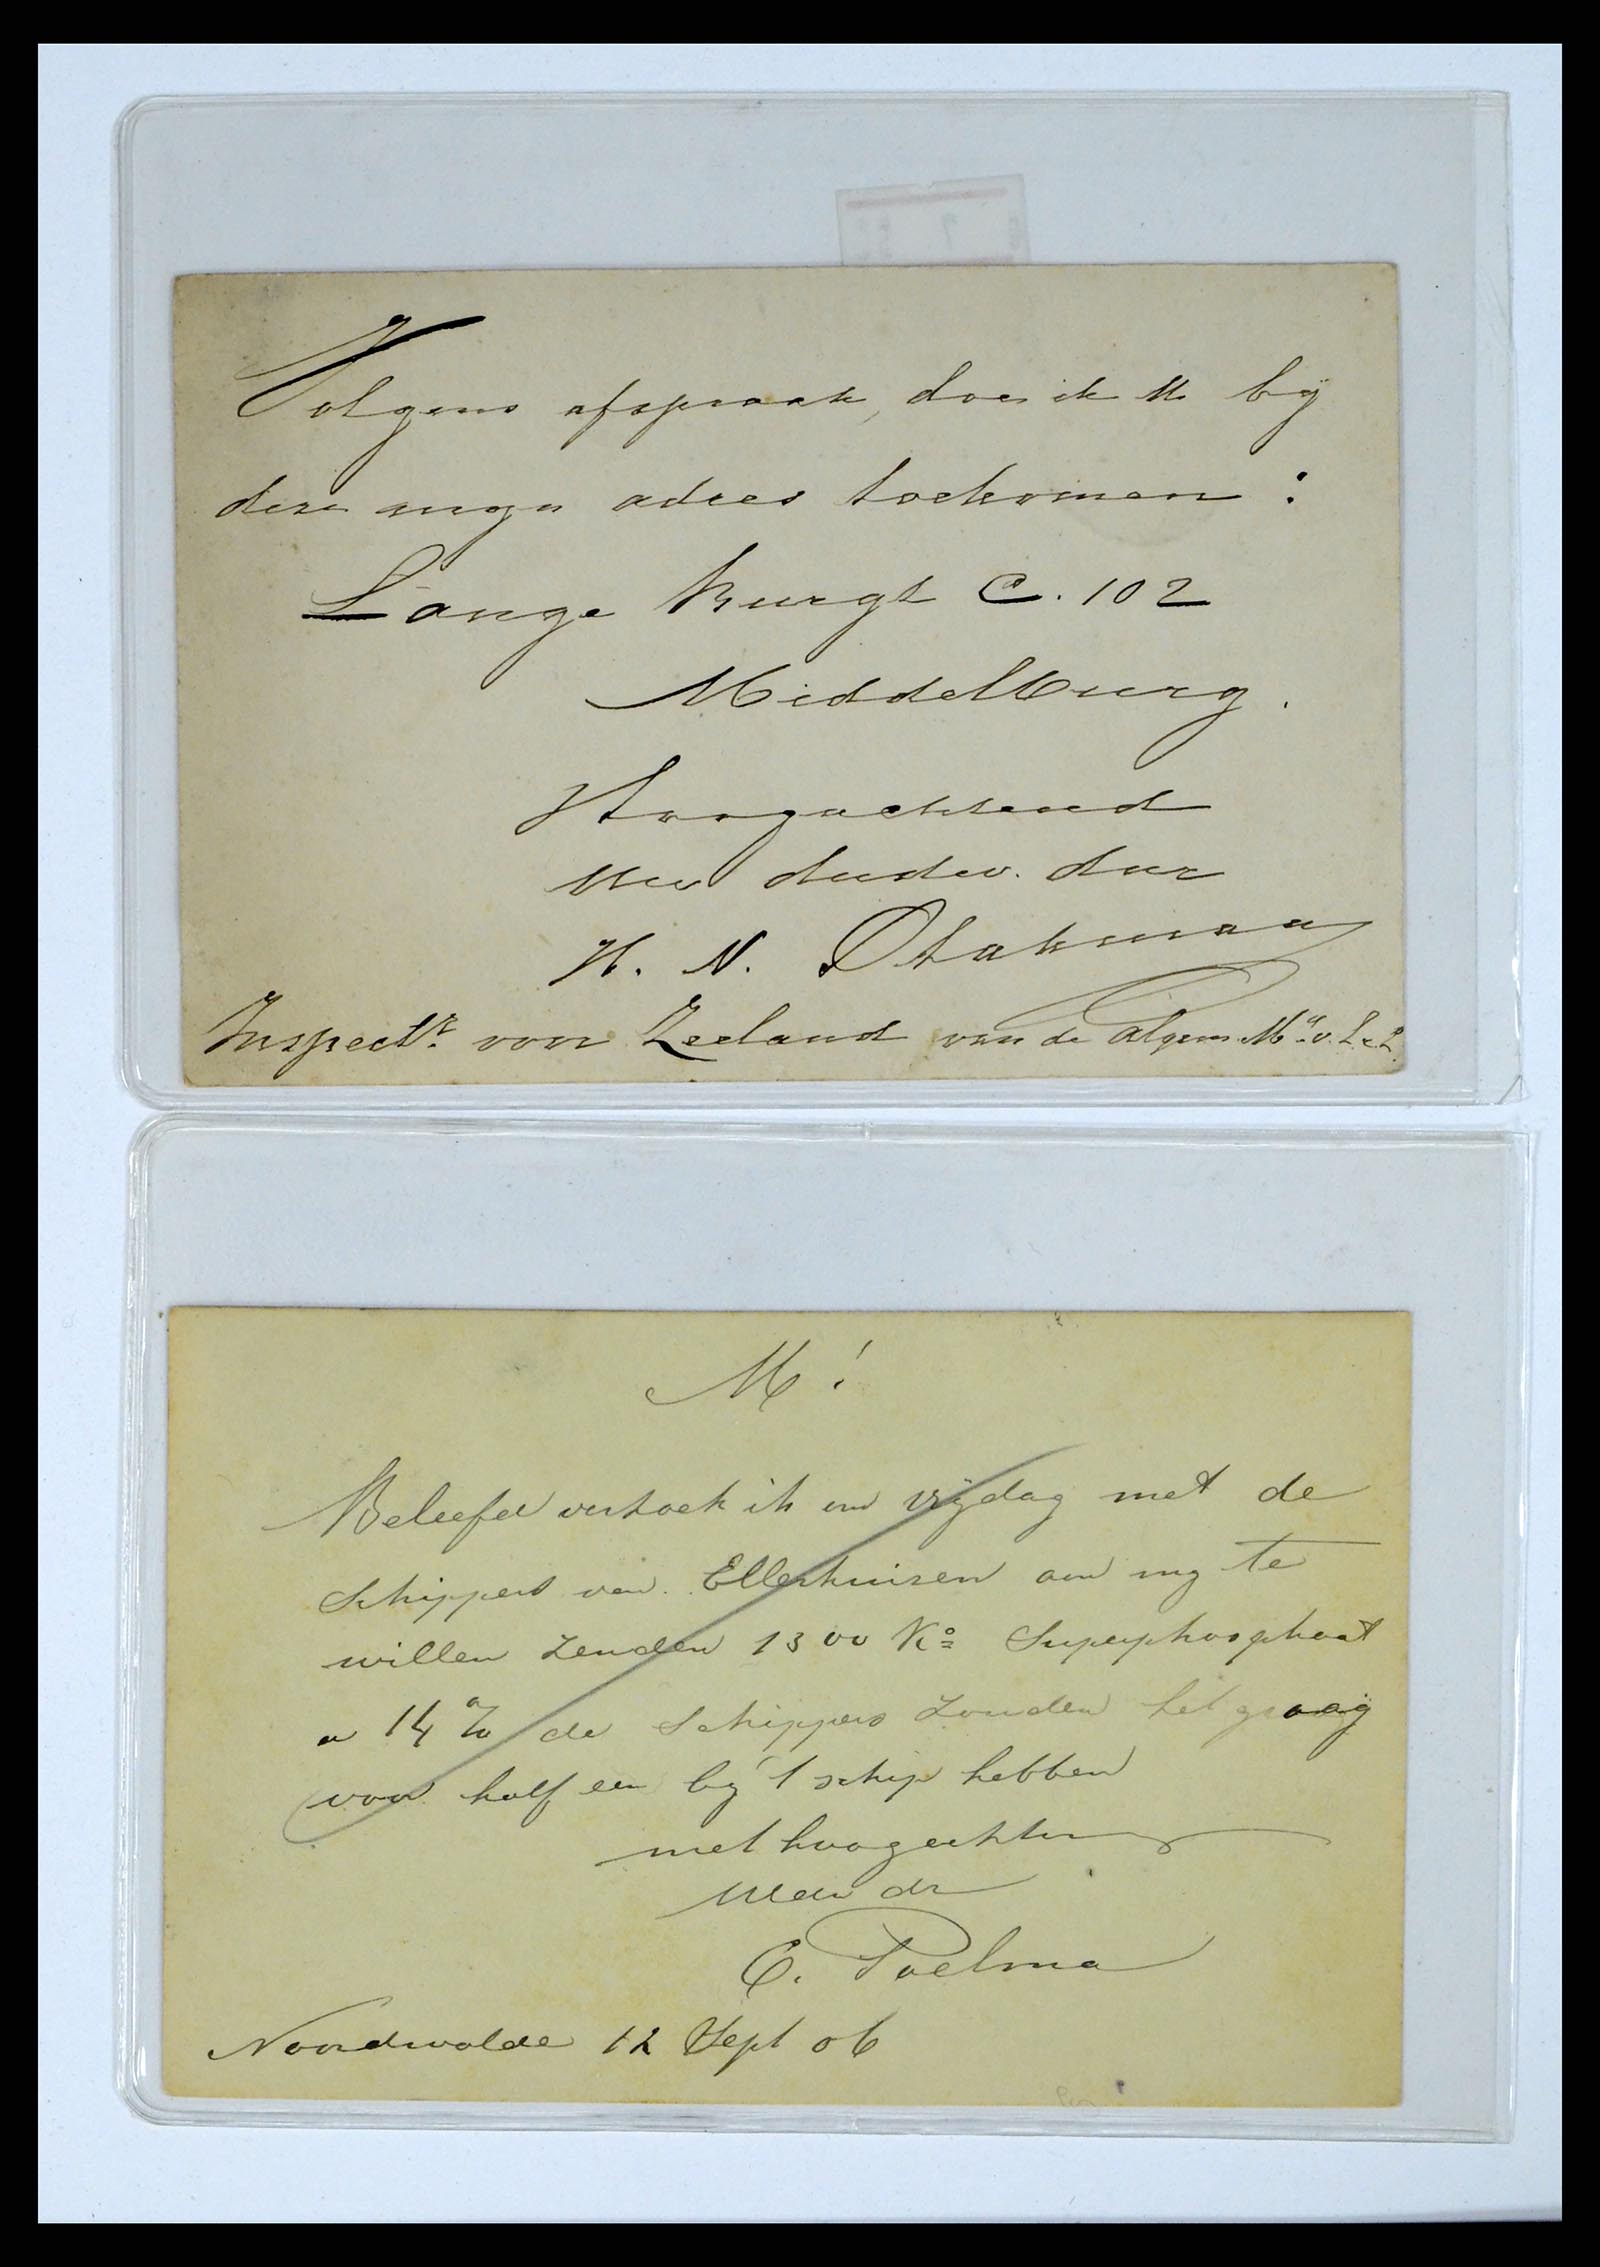 Volgens afspraak, doe ik U bij
deze mijn adres toekomen :
Lange Burgt C. 102
Middelburg.
Hoogachtend
Uw dudw. dnr
H. N. Stakman
Inspectr. voor Zeeland van de Algem. Mij. v. L & L.
M !
Beleefd verzoek ik uw vrijdag met de
Schippers van Ellerhuizen aan mij te
willen zenden 1300 Ko Superphosphaat
a 14 % de Schippers zouden het graag
voor half een bij 't schip hebben
met hoogachting
Uw dr
E. Poelma
Noordwolde 12 Sept 06